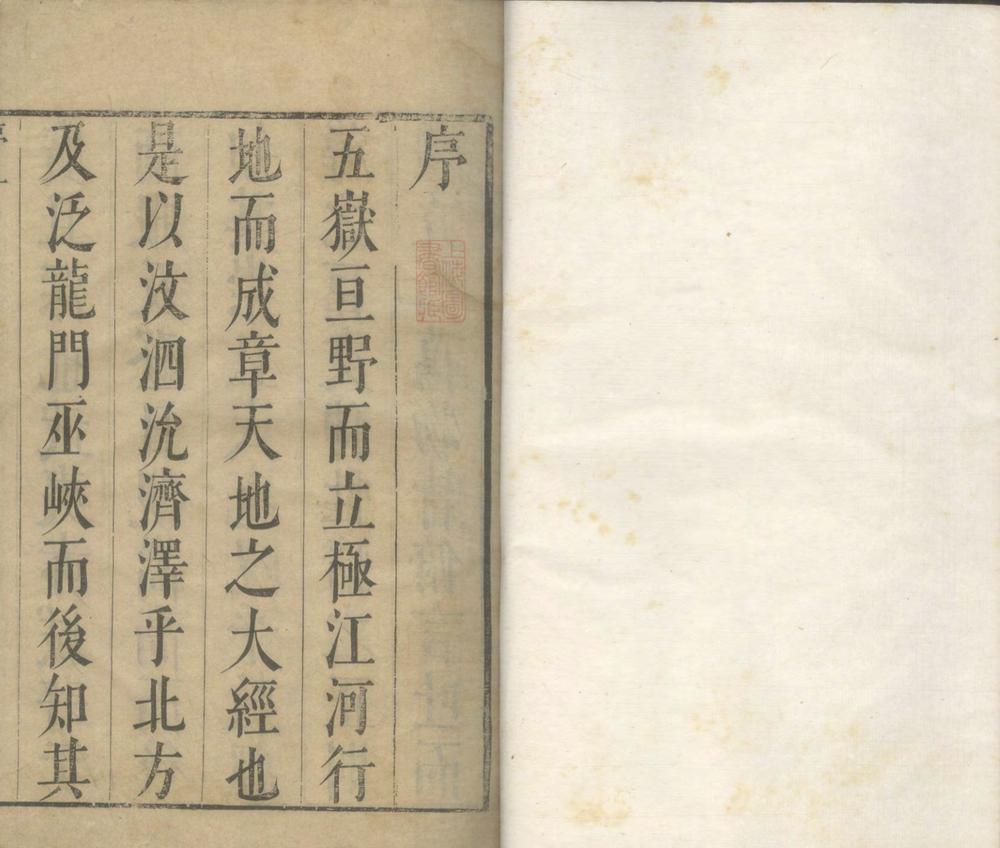 序
五嶽亘野而立極江河行
地而成章天地之大經也
是以汶泗沇濟澤乎北方
及泛龍門巫峽而後知其
上海圖
書館藏